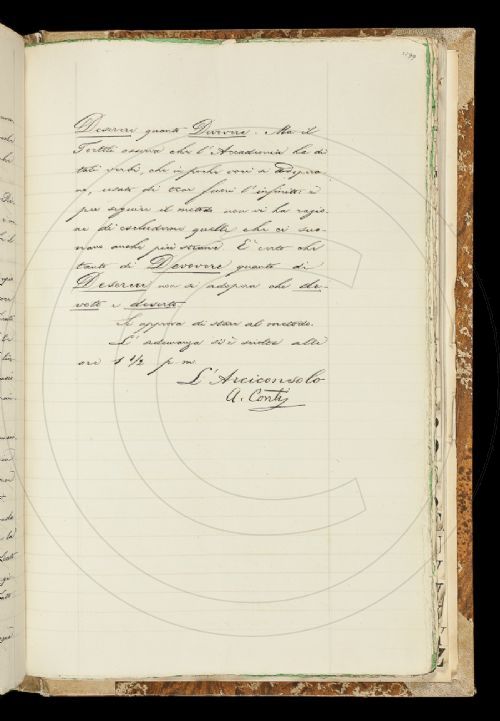 Deserere quanto Devovere. Ma il
Tortoli osserva che l'Accademia ha di
tali verbi, che in poche voci si adopra-
no, usato di trar fuori l'infinito: e
per seguire il metodo non vi ha ragio-
ne di escludere quelli che ci suo-
nano anche più strani. È certo che
tanto di Devovere quanto di
Deserere non si adopera che de-
voto e deserto.
Si approva di stare al metodo.
L'adunanza si è sciolta alle
ore 1 1/2 p. m.
L'Arciconsolo
A. Conti